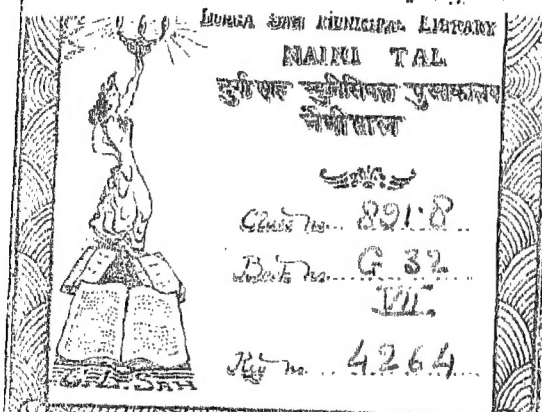 DURGA SAH MUNICIPAL LIBRARY
NAINI TAL
दुर्गा साह म्युनिसिपल पुस्तकालय
नैनीताल
Class no... 891.8...
Book no... G 32...
VII.
Reg no... 4264...
C. L. SAH